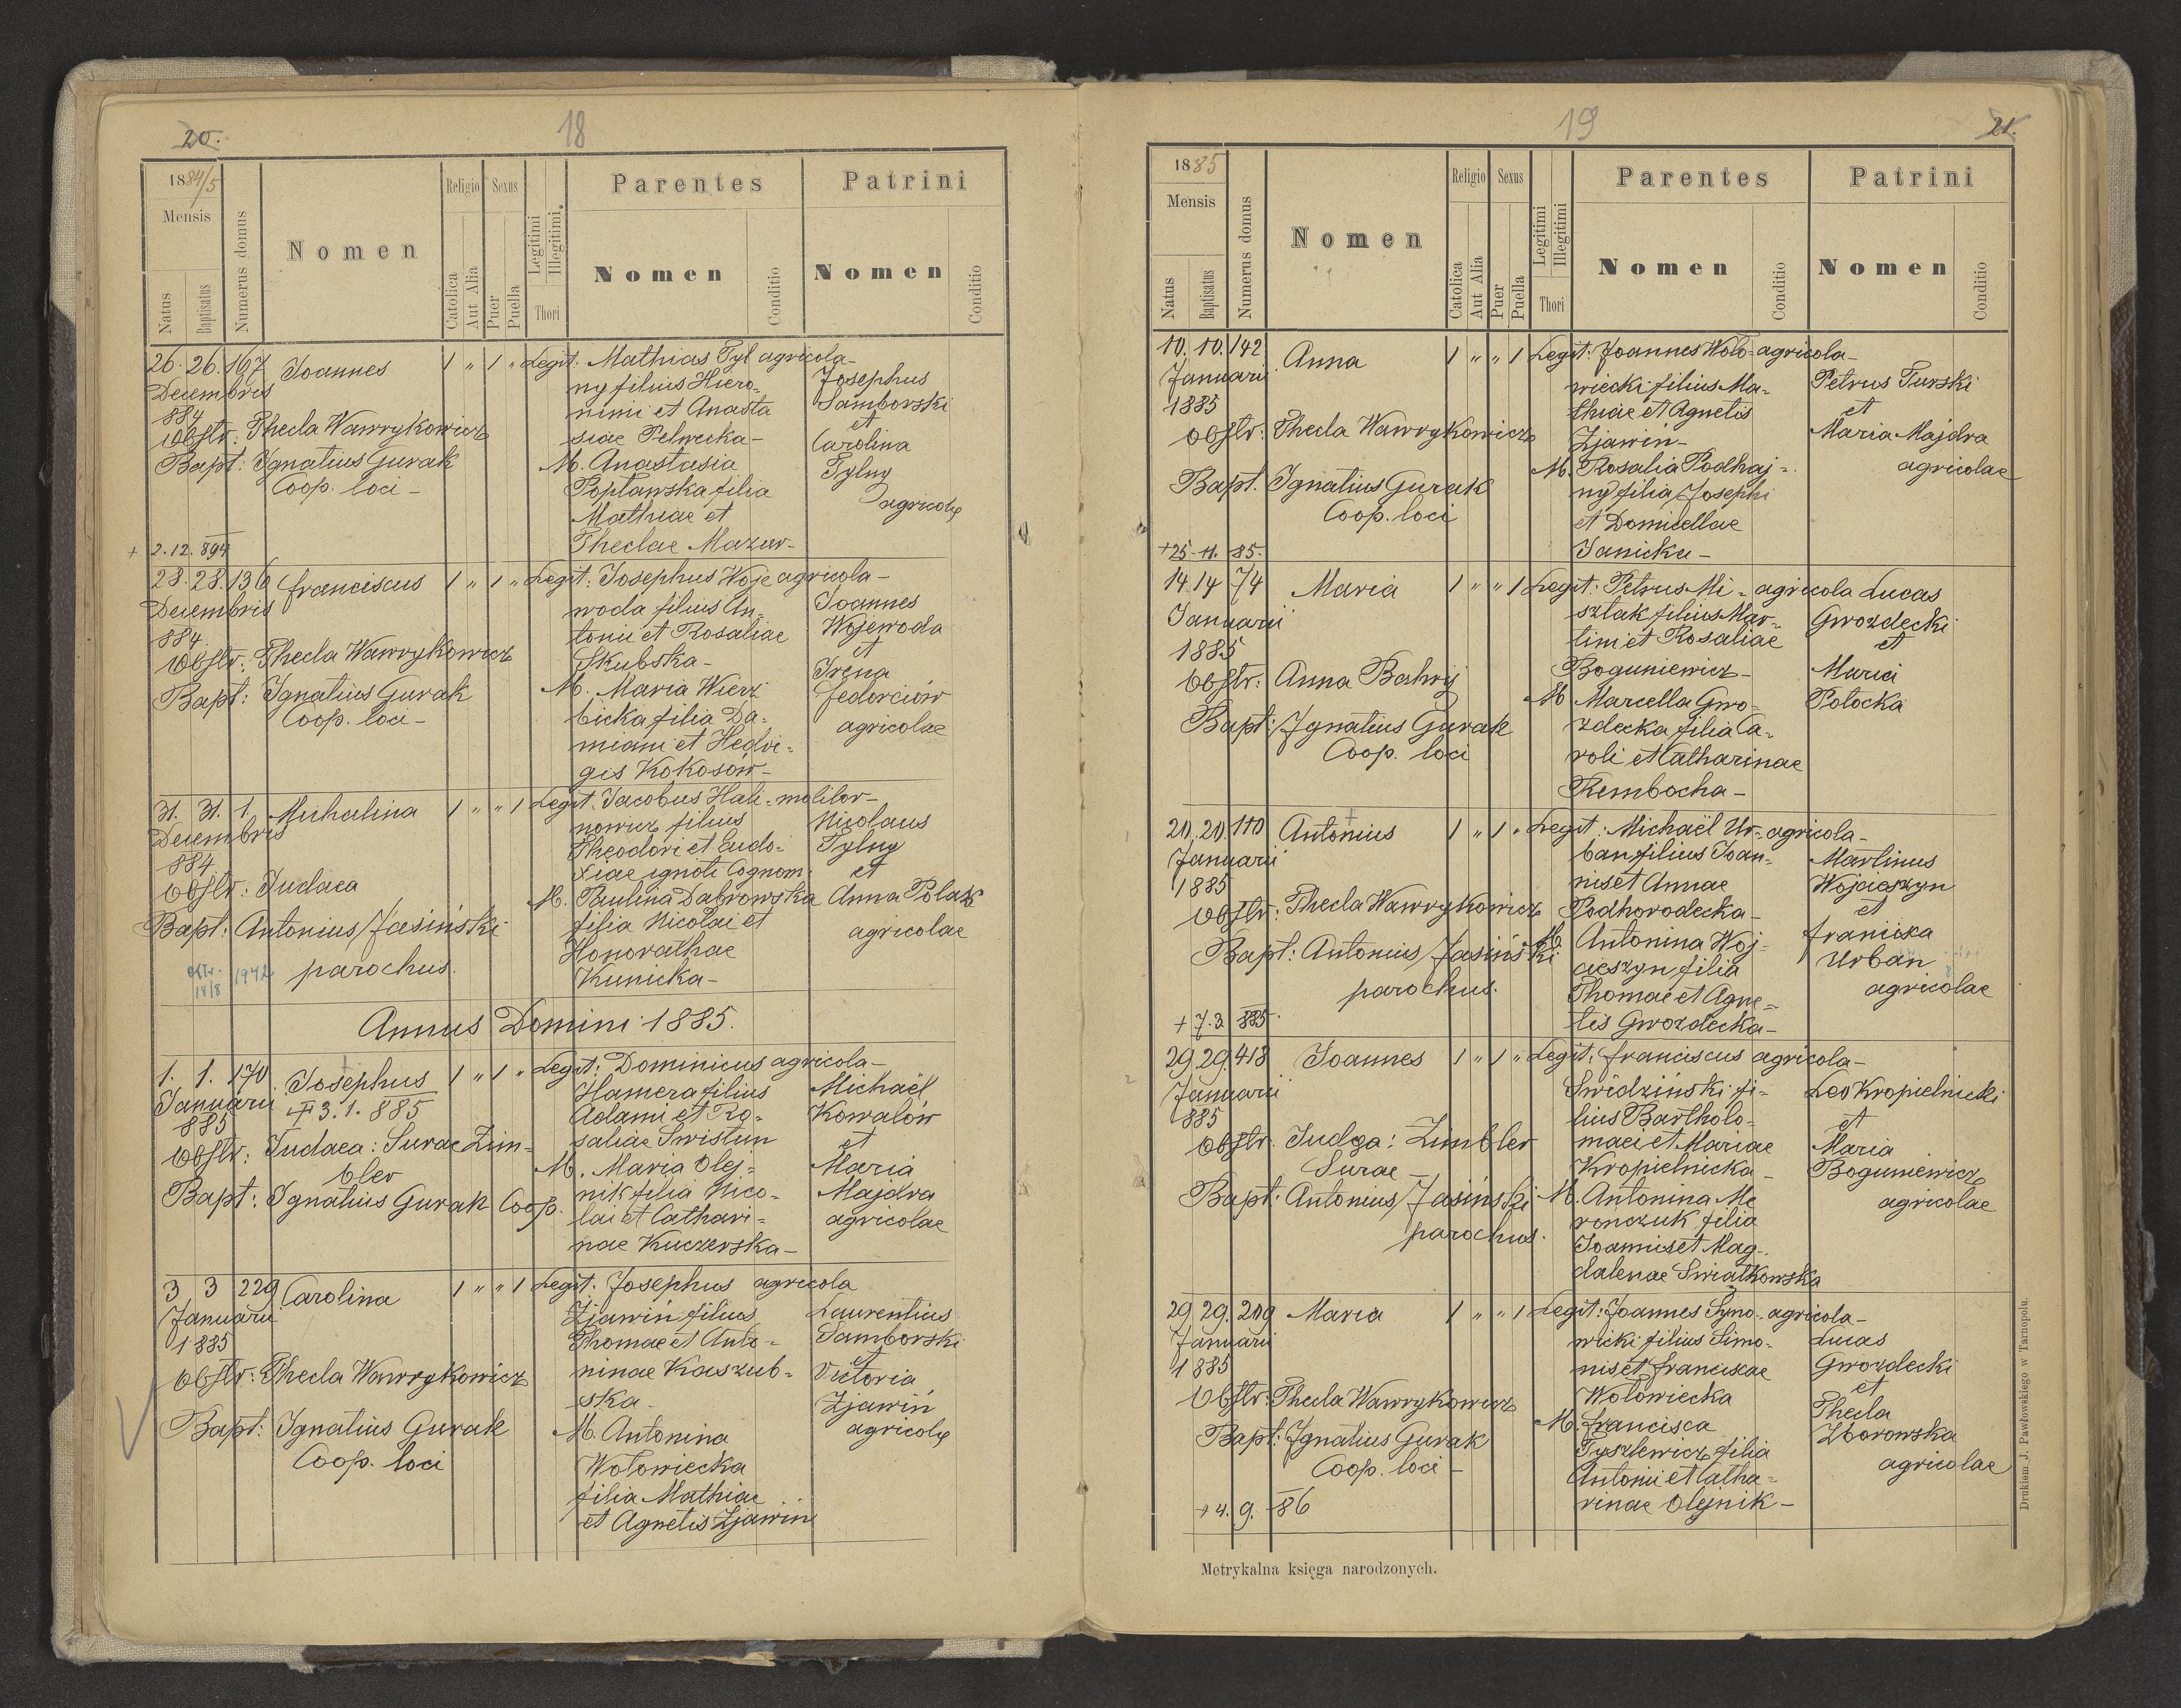 20.
18
1884/5
Mensis
Natus
Baptisatus
Numerus domus
Nomen
Religio
Catolica
Aut Alia
Sexus
Puer
Puella
Legitimi
Illegitimi.
Thori
Parentes
Nomen
Conditio
Patrini
Nomen
Conditio
26. 26. 167 Joannes 1 " 1 " Legit: Mathias Tyl agricola-
Decembris
884
Obstr: Thecla Wawrykowicz
Bapt: Ignatius Gurak
Coop. loci-
+ 2.12.894
ny filius Hiero-
nimi et Anasta
siae Pelwecka-
M. Anastasia
Popławska filia
Mathiae et
Theclae Mazur-
Josephus
Samborski
et
Carolina
Tylny
agricolę
28. 28. 136 Franciscus 1 " 1 " Legit: Josephus Woje agricola-
Decembris
884
Obstr: Thecla Wawrykowicz
Bapt: Ignatius Gurak
Coop. loci-
woda filius An-
tonii et Rosaliae
Skubska-
M. Maria Wierz
bicka filia Da-
miani et Hedvi-
gis Kokosów-
Joannes
Wojewoda
et
Irena
Fedorciów
agricolae
31. 31. 1. Michalina 1 " " 1 Legit. Jacobus Hali- molitor-
Decembris
884
Obstr: Judaea
Bapt: Antonius Jasiński
parochus.
18/8 1942
nowicz filius
Theodori et Eudo-
xiae ignoti Cognom:
M. Paulina Dabrowska
filia Nicolai et
Honorathae
Kunicka-
Nicolaus
Tylny
et
Anna Polak
agricolae
Annus Domini 1885.
1. 1. 170. Josephus 1 " 1 " Legit: Dominicus agricola-
Januarii + 3.1.885
885
Obstr: Judaea: Surae Zim-
bler
Bapt: Ignatius Gurak Coop.
Hamera filius
Adami et Ro-
saliae Swistun
M. Maria Olej-
nik filia Nico-
lai et Cathari-
nae Kuczerska-
Michaël
Kowalów
et
Maria
Majdra
agricolae
3 3 229 Carolina 1 " " 1 Legit: Josephus agricola
Januarii
1885
Obstr: Thecla Wawrykowicz
Bapt: Ignatius Gurak
Coop. loci
Zjawiń filius
Thomae et Anto-
ninae Kaszub-
ska-
M. Antonina
Wołowiecka
filia Mathiae
et Agnetis Zjawiń
Laurentius
Samborski
et
Victoria
Zjawiń
agricolę
19
21.
1885
Mensis
Natus
Baptisatus
Numerus domus
Nomen
Religio
Catolica
Aut Alia
Sexus
Puer
Puella
Legitimi
Illegitimi
Thori
Parentes
Nomen
Conditio
Patrini
Nomen
Conditio
10. 10. 142 Anna 1 " " 1 Legit: Joannes Woło- agricola-
Januarii
1885
Obstr: Thecla Wawrykowicz
Bapt. Ignatius Gurak
Coop. loci
+25-11. 85-
wiecki filius Ma-
thiae et Agnetis
Zjawiń-
M. Rosalia Podhaj-
ny filia Josephi
et Domicellae
Janicka-
Petrus Turski
et
Maria Majdra
agricolae
14 14 74 Maria 1 " " 1 Legit: Petrus Mi- agricola Lucas
Januarii
1885
Obstr: Anna Bahrij
Bapt: Ignatius Gurak
Coop. loci
szlak filius Mar-
tini et Rosaliae
Boguniewicz-
M Marcella Gwo-
zdecka filia Ca-
roli et Catharinae
Rembocha-
Gwozdecki
et
Maria
Potocka
20. 20. 110 Antonius 1 " 1 " Legit: Michaël Ur- agricola-
Januarii
1885
Obstr: Thecla Wawrykowicz
Bapt: Antonius Jasiński
parochus.
+ 7.3 885.
ban filius Joan-
nis et Annae
Podhorodecka-
M. Antonina Woj-
cieszyn filia
Thomae et Agne-
tis Gwozdecka-
Martinus
Wojcieszyn
et
Franciska
Urban
agricolae
29. 29. 418 Joannes 1 " 1 " Legit: Franciscus agricola-
Januarii
885
Obstr. Judęa: Zimbler
Surae-
Bapt: Antonius Jasiński
parochus.
Swidziński fi-
lius Bartholo-
maei et Mariae
Kropielnicka-
M. Antonina Me
ronczuk filia
Joannis et Mag-
dalenae Swiatkowska
Leo Kropielnicki
et
Maria
Boguniewicz
agricolae
29. 29. 209 Maria 1 " " 1 Legit: Joannes Syno- agricola-
Januarii
1885
Obstr: Thecla Wawrykowicz
Bapt: Ignatius Gurak
Coop. loci-
+ 4. 9. 86
wicki filius Simo-
nis et Franciscae
Wołowiecka
M. Francisca
Tyszlewicz filia
Antonii et Catha-
rinae Olejnik-
Lucas
Gwozdecki
et
Thecla
Zborowska
agricolae
Metrykalna księga narodzonych.
Drukiem J. Pawłowskiego w Tarnopolu.